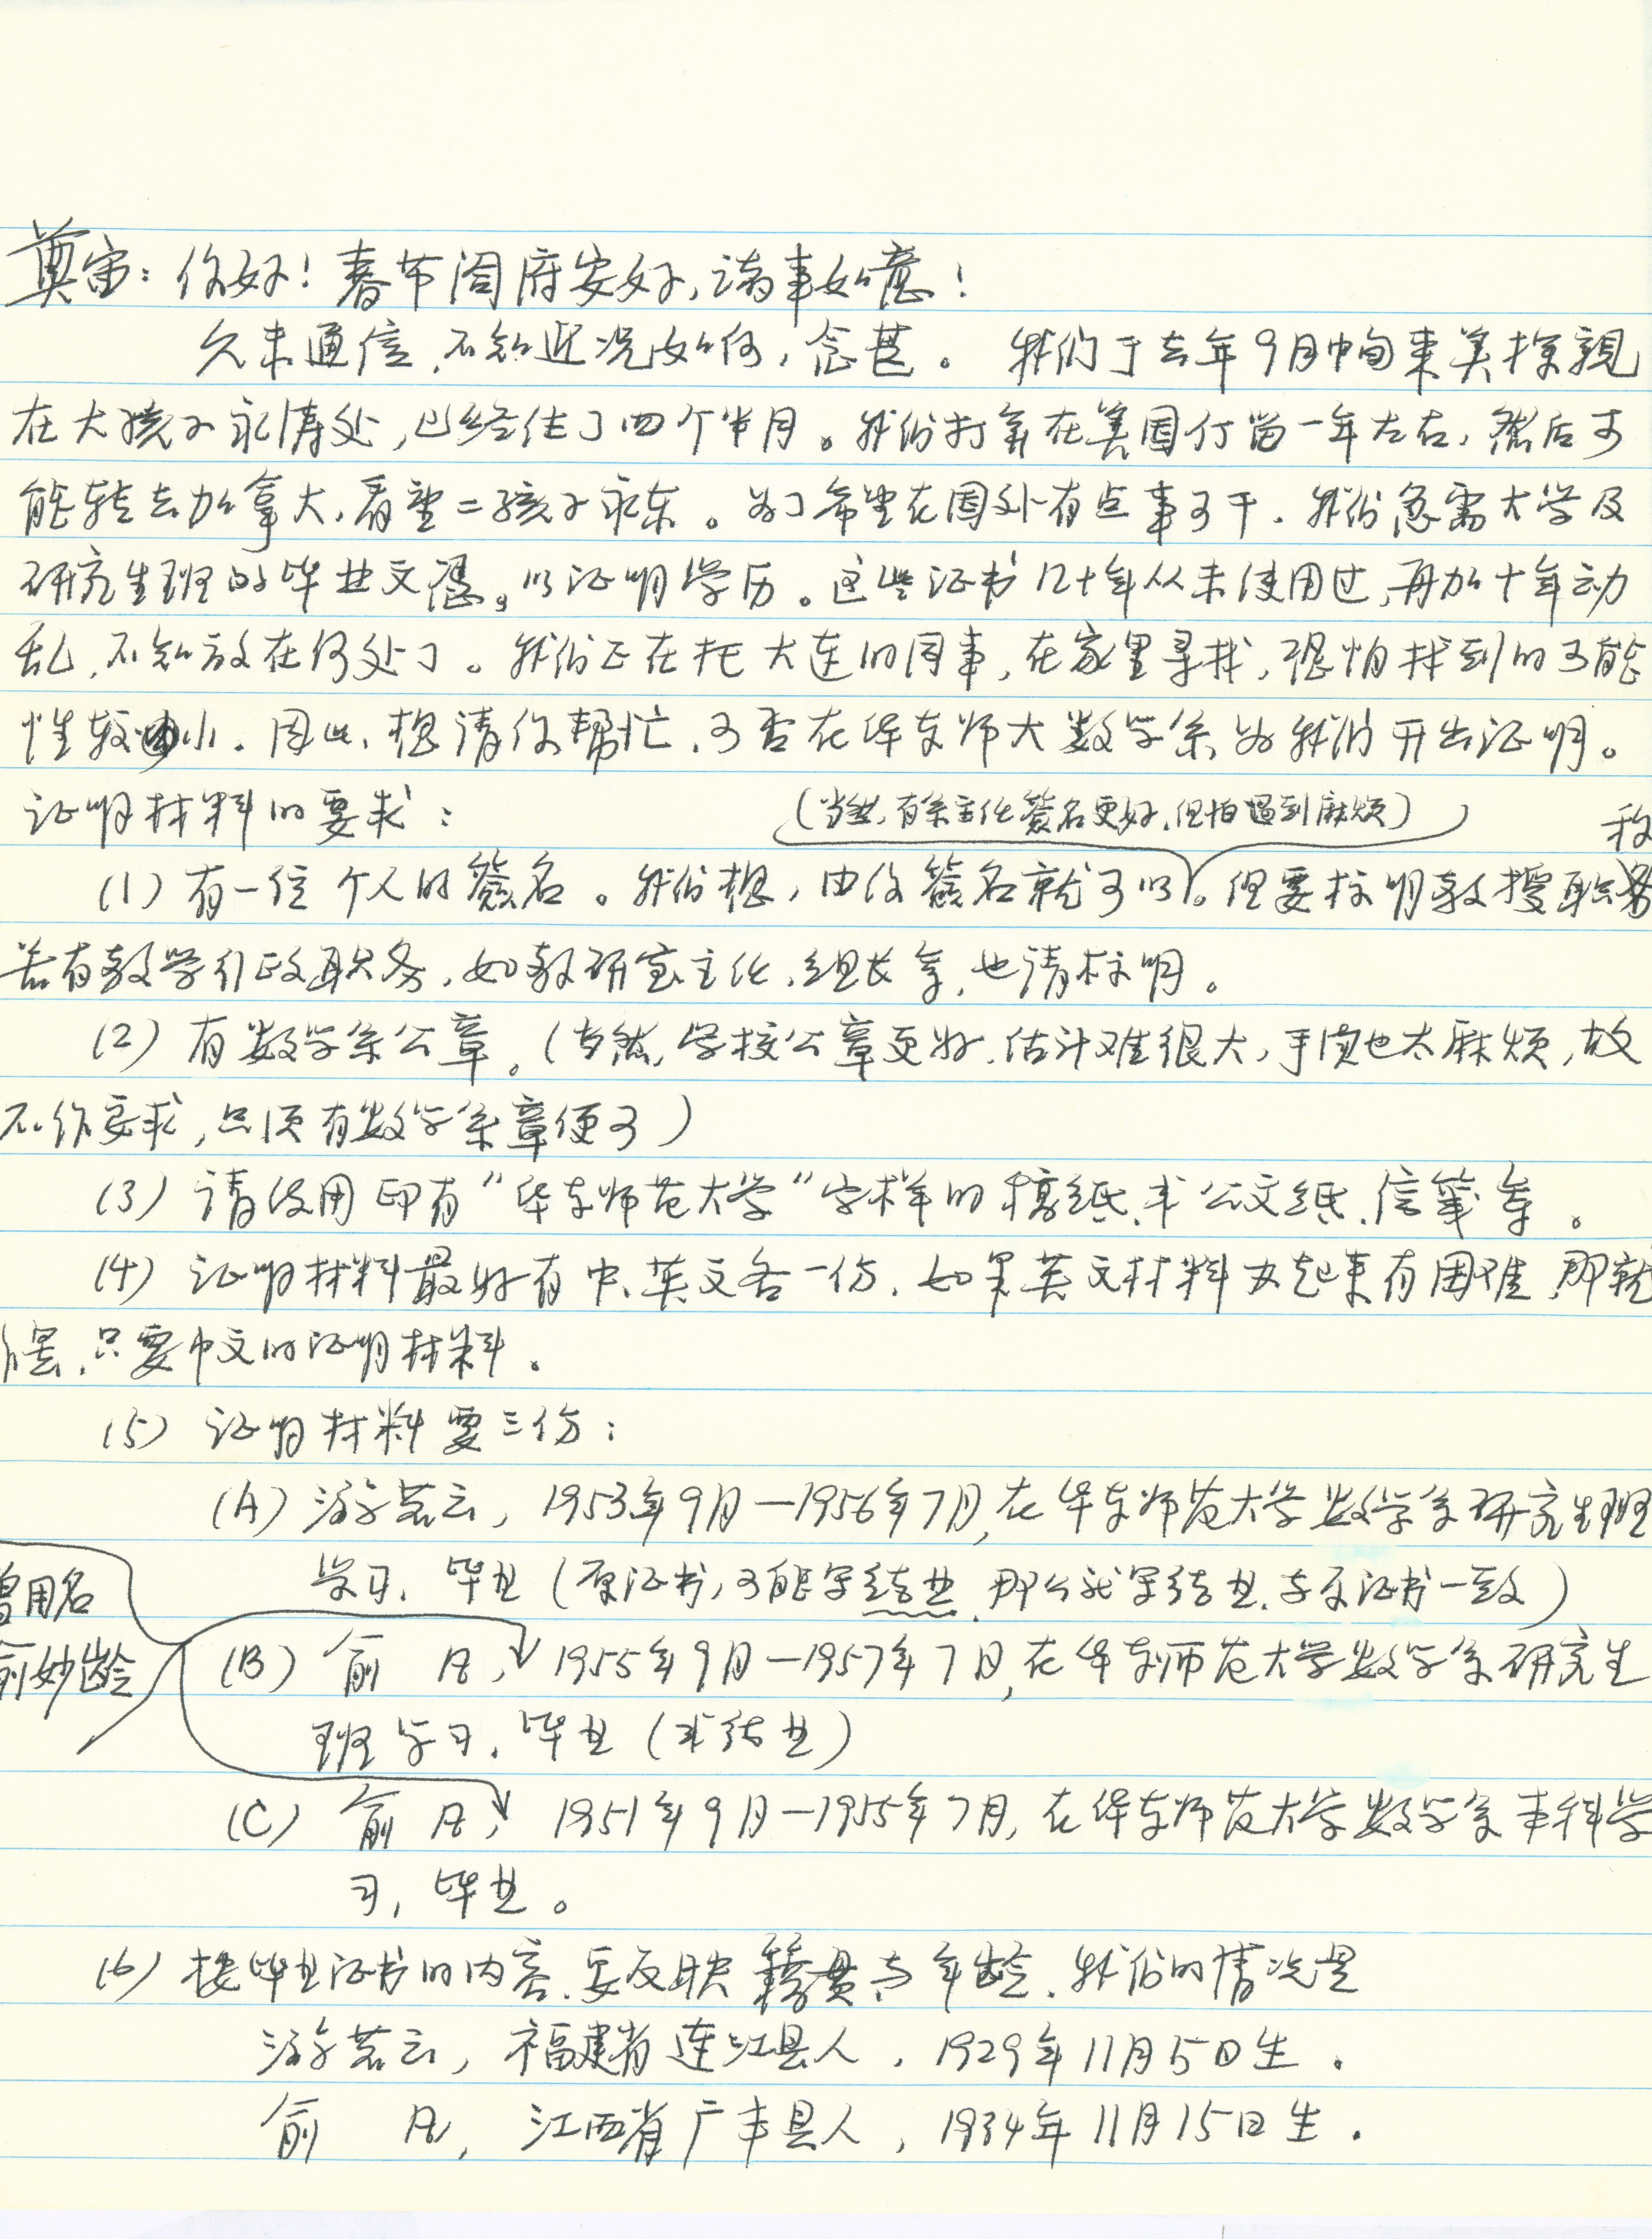 奠宙：你好！春节阖府安好，诸事如意！
久未通信，不知近况如何，念甚。我们于去年9月中旬来美探亲
在大孩子永涛处，已经住了四个半月。我们打算在美国停留一年左右，然后可
能转去加拿大，看望二孩子永东。为了希望在国外有点事可干，我们急需大学及
研究生班的毕业文凭，以证明学历。这些证书几十年从未使用过，再加十年动
乱，不知放在何处了。我们正在托大连的同事，在家里寻找，恐怕找到的可能
性较小。因此，想请你帮忙，可否在华东师大数学系为我们开出证明。
证明材料的要求：
（当然，有系主任签名更好，但怕遇到麻烦）
(1) 有一位个人的签名。我们想，由你签名就可以。但要标明教授职称
若有教学行政职务，如教研室主任、组长等，也请标明。
(2) 有数学系公章。（当然，学校公章更好，估计难很大，手续也太麻烦，故
不作要求，只须有数学系章便可）
(3) 请使用印有“华东师范大学”字样的稿纸，或公文纸、信笺等。
(4) 证明材料最好有中、英文各一份，如果英文材料办起来有困难，那就
罢，只要中文的证明材料。
(5) 证明材料要三份：
(A) 游若云，1953年9月—1956年7月，在华东师范大学数学系研究生班
学习，毕业（原证书，可能写结业，那么就写结业，与原证书一致）
曾用名
俞妙龄
(B) 俞 凡，1955年9月—1957年7月，在华东师范大学数学系研究生
班学习，毕业（或结业）
(C) 俞 凡，1951年9月—1955年7月，在华东师范大学数学系本科学
习，毕业。
(6) 按毕业证书的内容，要反映籍贯与年龄，我们的情况是
游若云，福建省连江县人，1929年11月5日生。
俞 凡，江西省广丰县人，1934年11月15日生。